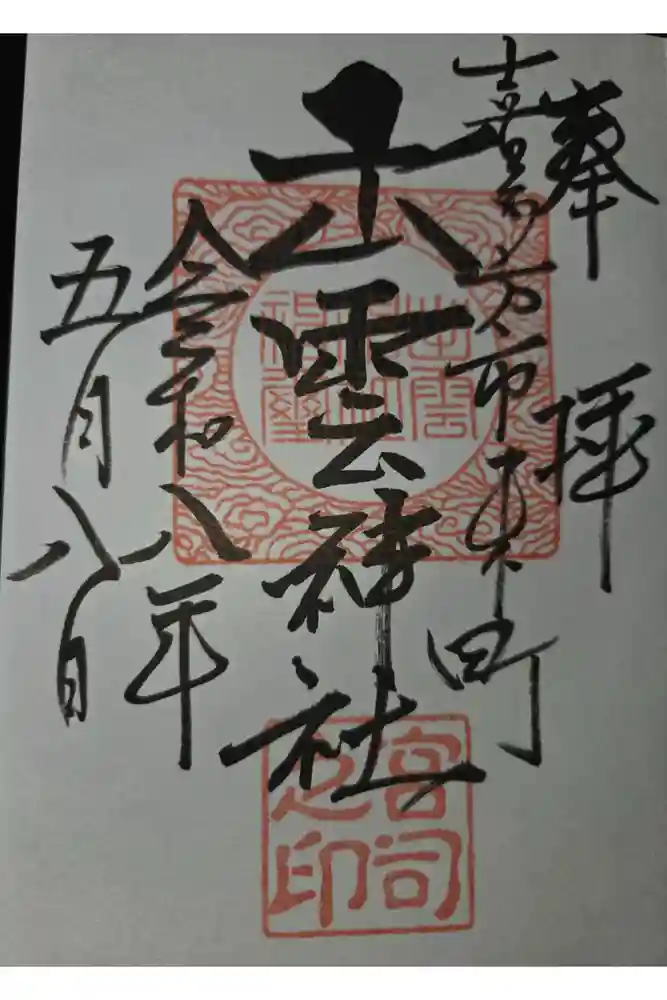 奉拝
喜多方市東町
出雲神社
令和八年
五月八日
出雲
宮司
之印